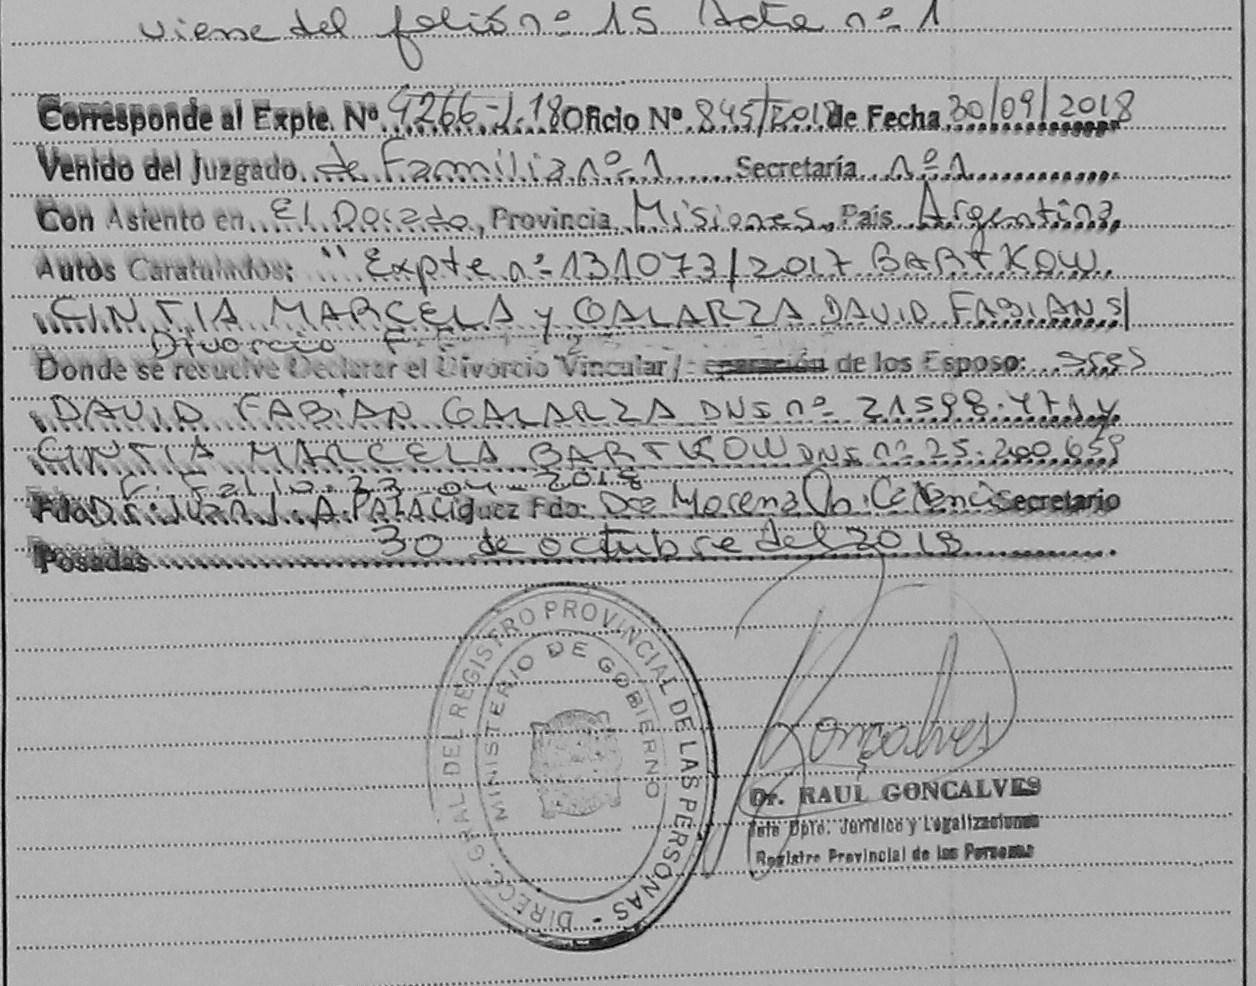 viene del folio nº 15 Acta nº 1
Corresponde al Expte. Nº 4266-J-18 Oficio Nº 845/2018 de Fecha 30/09/2018
Venido del Juzgado de Familia nº 1 Secretaría nº 1
Con Asiento en El Dorado, Provincia Misiones, País Argentina,
Autos Caratulados: "Expte nº 131073/2017 BARTKOW
CINTIA MARCELA y GALARZA DAVID FABIAN S/
Divorcio
Donde se resuelve Declarar el Divorcio Vincular/ de los Esposo: Sres
DAVID FABIAN GALARZA DNI nº 21.598.471 y
CINTIA MARCELA BARTKOW DNI nº 25.200.659
F. Fallo: 23-04-2018
Fdo Dr. Juan J. A. Fdo: Dra Morena Secretario
Posadas 30 de octubre del 2018
DIRECC. GRAL. DEL REGISTRO PROVINCIAL DE LAS PERSONAS -
MINISTERIO DE GOBIERNO
Goncalves
Dr. RAUL GONCALVES
Jefe Dpto. Jurídico y Legalizaciones
Registro Provincial de las Personas